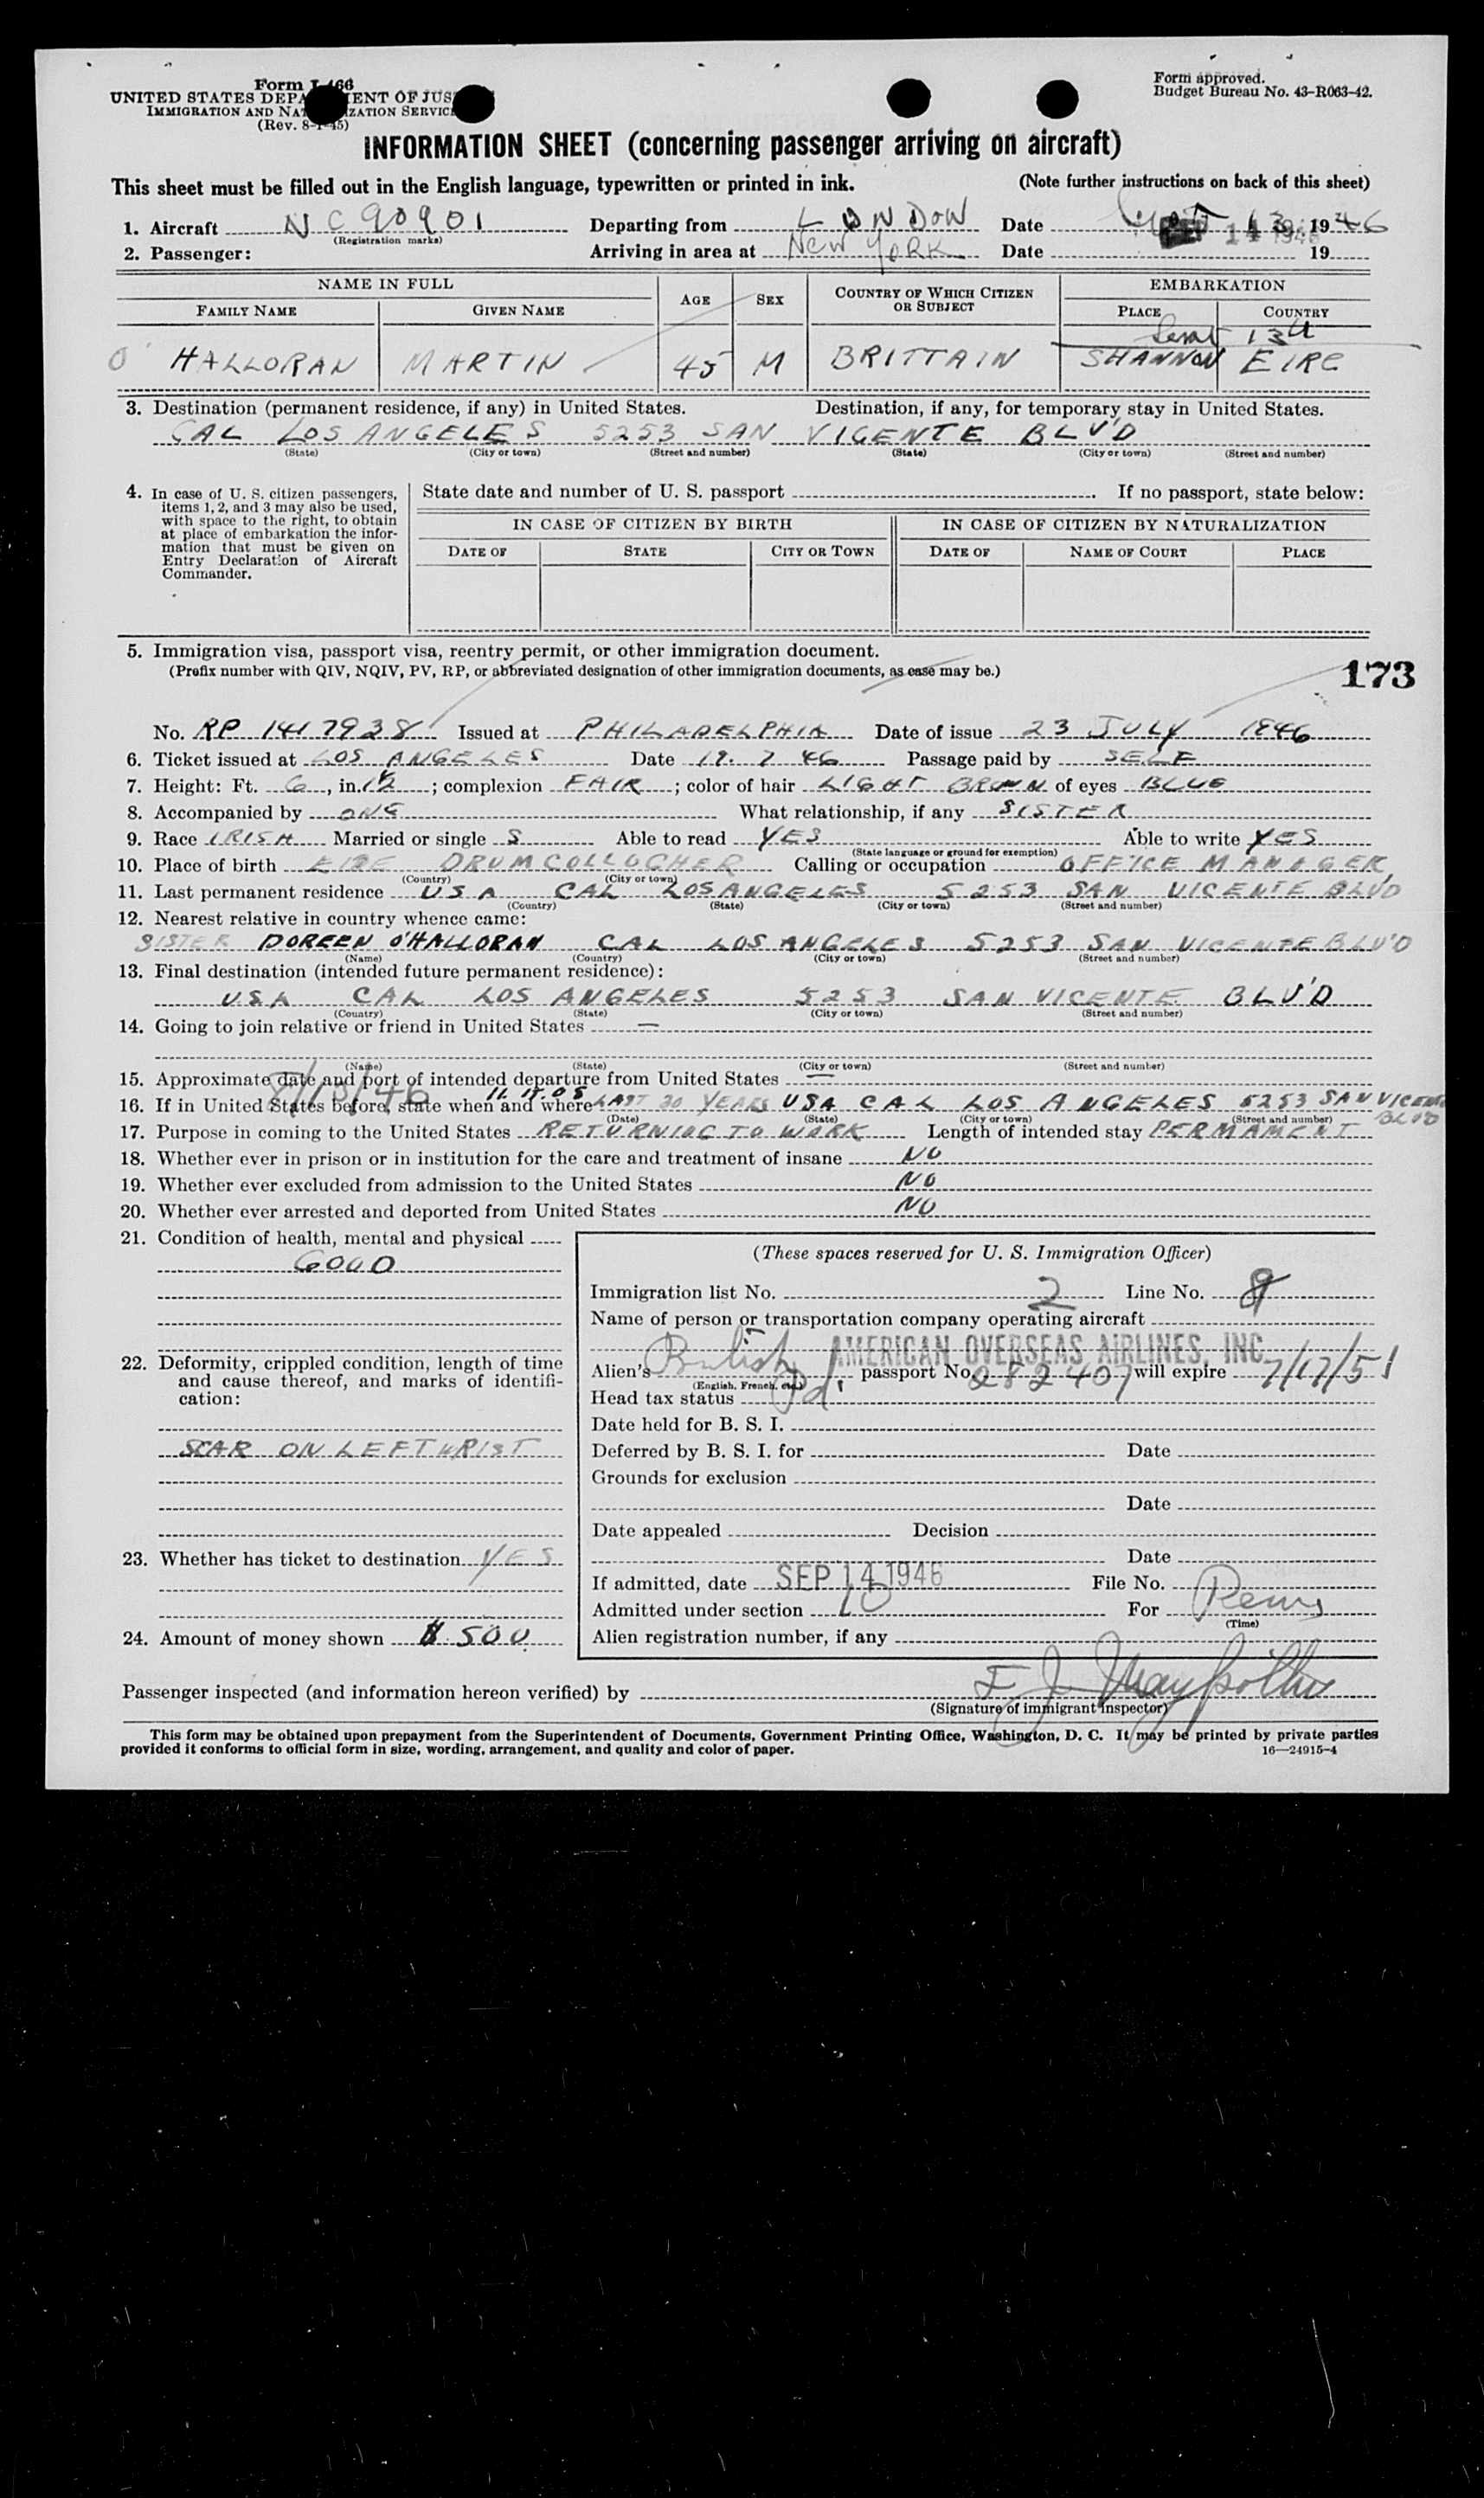 Form I-466
UNITED STATES DEPARTMENT OF JUSTICE
IMMIGRATION AND NATURALIZATION SERVICE
(Rev. 8-1-45)
Form approved.
Budget Bureau No. 43-R063-42.
INFORMATION SHEET (concerning passenger arriving on aircraft)
This sheet must be filled out in the English language, typewritten or printed in ink. (Note further instructions on back of this sheet)
1. Aircraft NC90901 Departing from LONDON Date 13, 1946
(Registration marks)
2. Passenger: Arriving in area at NEW YORK Date 19
NAME IN FULL AGE SEX COUNTRY OF WHICH CITIZEN OR SUBJECT EMBARKATION
FAMILY NAME GIVEN NAME PLACE COUNTRY
13th
O'HALLORAN MARTIN 45 M BRITTAIN SHANNON EIRE
3. Destination (permanent residence, if any) in United States. Destination, if any, for temporary stay in United States.
CAL LOS ANGELES 5253 SAN VICENTE BLV'D
(State) (City or town) (Street and number) (State) (City or town) (Street and number)
4. In case of U. S. citizen passengers, items 1, 2, and 3 may also be used, with space to the right, to obtain at place of embarkation the information that must be given on Entry Declaration of Aircraft Commander.
State date and number of U. S. passport . If no passport, state below:
IN CASE OF CITIZEN BY BIRTH IN CASE OF CITIZEN BY NATURALIZATION
DATE OF STATE CITY OR TOWN DATE OF NAME OF COURT PLACE
5. Immigration visa, passport visa, reentry permit, or other immigration document.
(Prefix number with QIV, NQIV, PV, RP, or abbreviated designation of other immigration documents, as case may be.)
173
No. RP 1417938 Issued at PHILADELPHIA Date of issue 23 JULY 1946
6. Ticket issued at LOS ANGELES Date 19. 7 46 Passage paid by SELF
7. Height: Ft. 6, in. 1½; complexion FAIR; color of hair LIGHT BROWN of eyes BLUE
8. Accompanied by ONE What relationship, if any SISTER
9. Race IRISH Married or single S Able to read YES Able to write YES
(State language or ground for exemption)
10. Place of birth EIRE DRUMCOLLOGHER Calling or occupation OFFICE MANAGER
(Country) (City or town)
11. Last permanent residence USA CAL LOS ANGELES 5253 SAN VICENTE BLVD
(Country) (State) (City or town) (Street and number)
12. Nearest relative in country whence came:
SISTER DOREEN O'HALLORAN CAL LOS ANGELES 5253 SAN VICENTE BLV'D
(Name) (Country) (City or town) (Street and number)
13. Final destination (intended future permanent residence):
USA CAL LOS ANGELES 5253 SAN VICENTE BLV'D
(Country) (State) (City or town) (Street and number)
14. Going to join relative or friend in United States —
(Name) (State) (City or town) (Street and number)
15. Approximate date and port of intended departure from United States —
16. If in United States before, state when and where LAST 20 YEARS USA CAL LOS ANGELES 5253 SAN VICENTE BLVD
(Date) (State) (City or town) (Street and number)
17. Purpose in coming to the United States RETURNING TO WORK Length of intended stay PERMAMENT
18. Whether ever in prison or in institution for the care and treatment of insane NO
19. Whether ever excluded from admission to the United States NO
20. Whether ever arrested and deported from United States NO
21. Condition of health, mental and physical
GOOD
22. Deformity, crippled condition, length of time and cause thereof, and marks of identification:
SCAR ON LEFT WRIST
23. Whether has ticket to destination YES
24. Amount of money shown $ 500
(These spaces reserved for U. S. Immigration Officer)
Immigration list No. 2 Line No. 8
Name of person or transportation company operating aircraft
AMERICAN OVERSEAS AIRLINES, INC
Alien's British passport No. 282407 will expire 7/17/51
(English, French, etc.)
Head tax status Pd.
Date held for B. S. I.
Deferred by B. S. I. for Date
Grounds for exclusion
Date
Date appealed Decision
Date
If admitted, date SEP 14 1946 File No.
Admitted under section For Perm
(Time)
Alien registration number, if any
Passenger inspected (and information hereon verified) by
(Signature of immigrant inspector)
This form may be obtained upon prepayment from the Superintendent of Documents, Government Printing Office, Washington, D. C. It may be printed by private parties
provided it conforms to official form in size, wording, arrangement, and quality and color of paper. 16—24915-4